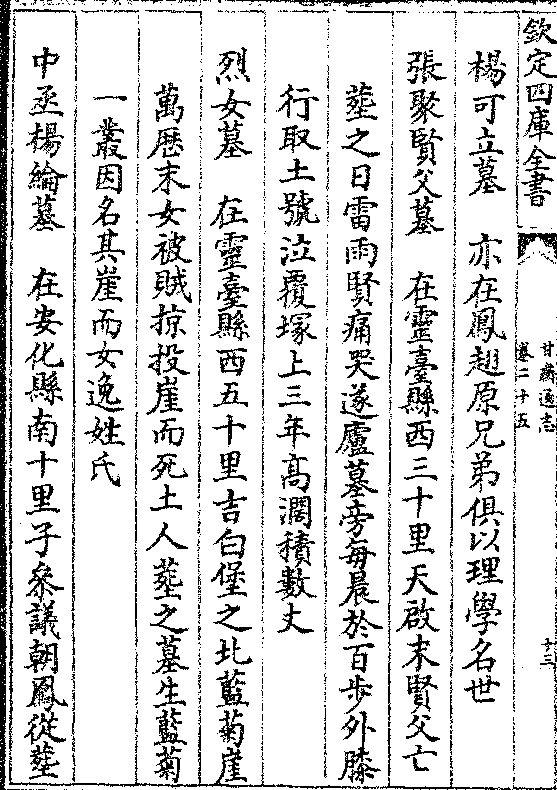 欽定四庫全書
甘肅通志
卷二十五
十三
楊可立墓　亦在鳳翅原兄弟俱以理學名世
張聚賢父墓　在靈臺縣西三十里天啟末賢父亡
塟之日雷雨賢痛哭遂廬墓旁每晨於百步外膝
行取土號泣覆塚上三年高濶積數丈
烈女墓　在靈臺縣西五十里吉白堡之北藍菊崖
萬歴末女被賊掠投崖而死土人塟之墓生藍菊
一叢因名其崖而女逸姓氏
中丞楊綸墓　在安化縣南十里子叅議朝鳳從塟